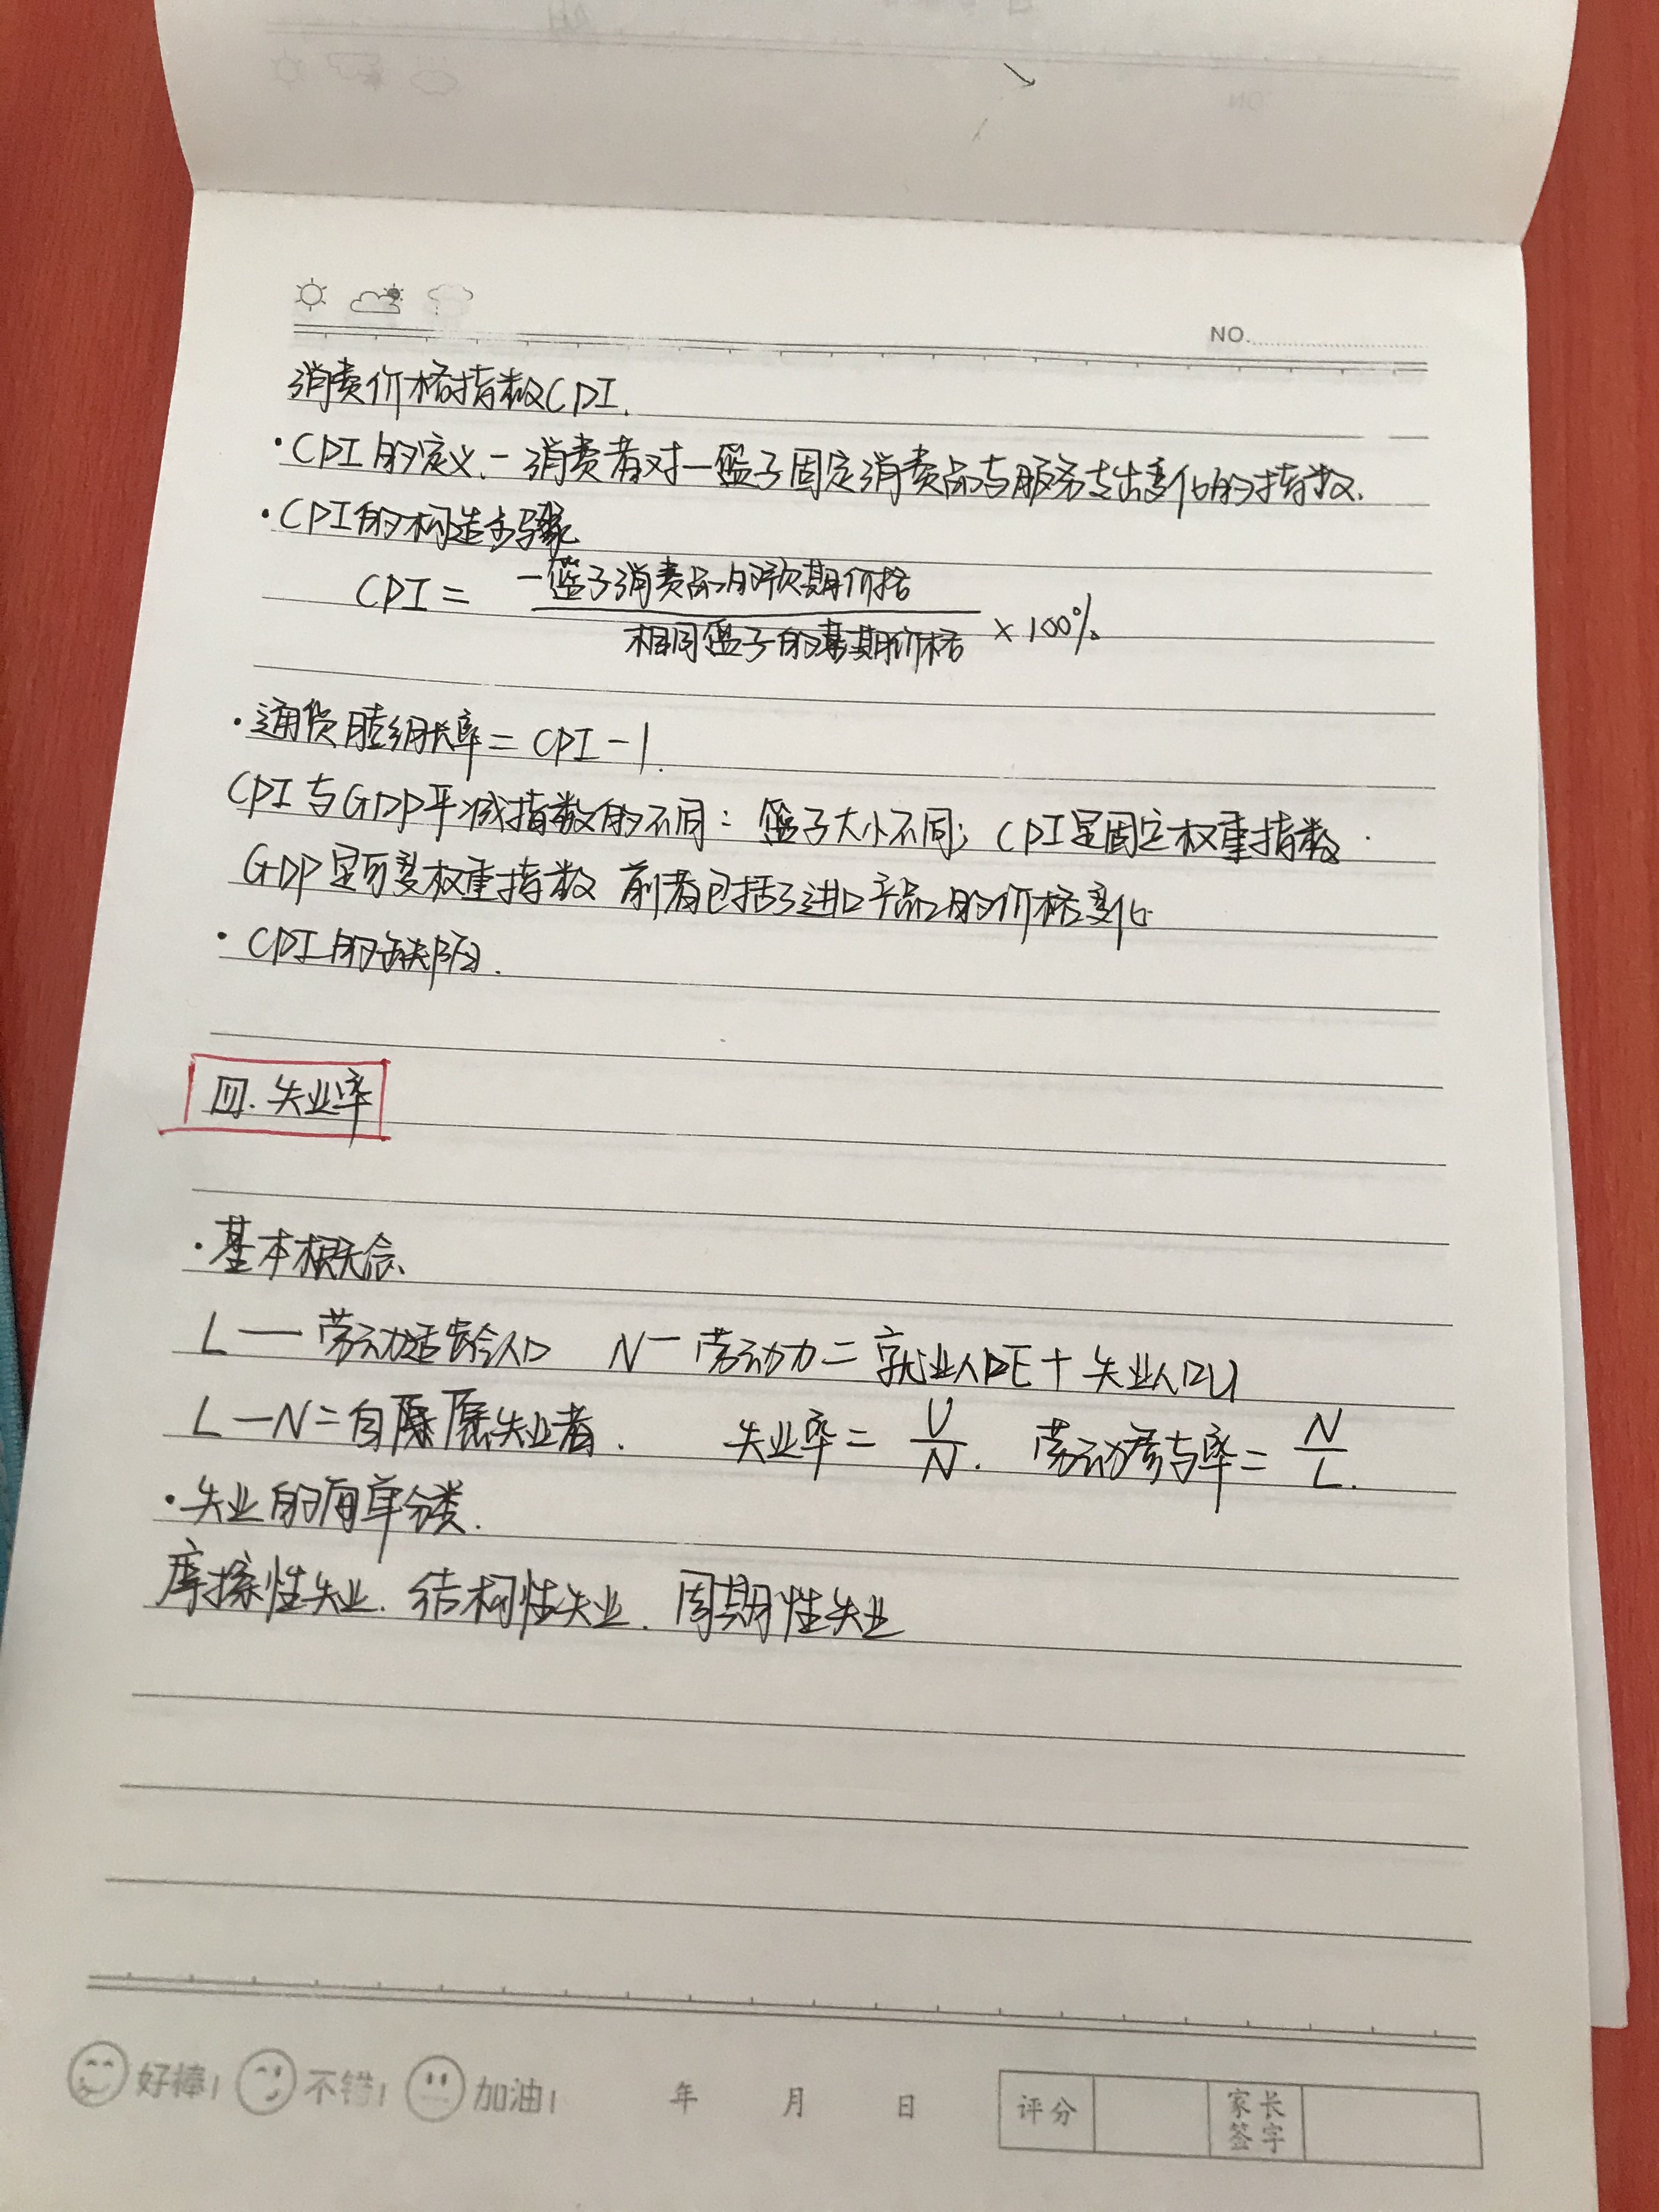 NO.
消费价格指数CPI.
·CPI的定义.－消费者对一篮子固定消费品与服务支出变化的指数.
·CPI的构造步骤
CPI = 一篮子消费品的现期价格 / 相同篮子的基期价格 × 100%
·通货膨胀率 = CPI－1.
CPI与GDP平减指数的不同: 篮子大小不同; CPI是固定权重指数
GDP是可变权重指数 前者包括了进口产品的价格变化
·CPI的缺陷.
四.失业率
·基本概念.
L — 劳动适龄人口 N — 劳动力 = 就业人口E + 失业人口U
L — N = 自愿失业者. 失业率 = U/N. 劳动参与率 = N/L.
·失业的简单分类.
摩擦性失业. 结构性失业. 周期性失业
好棒! 不错! 加油! 年 月 日 评分 家长签字